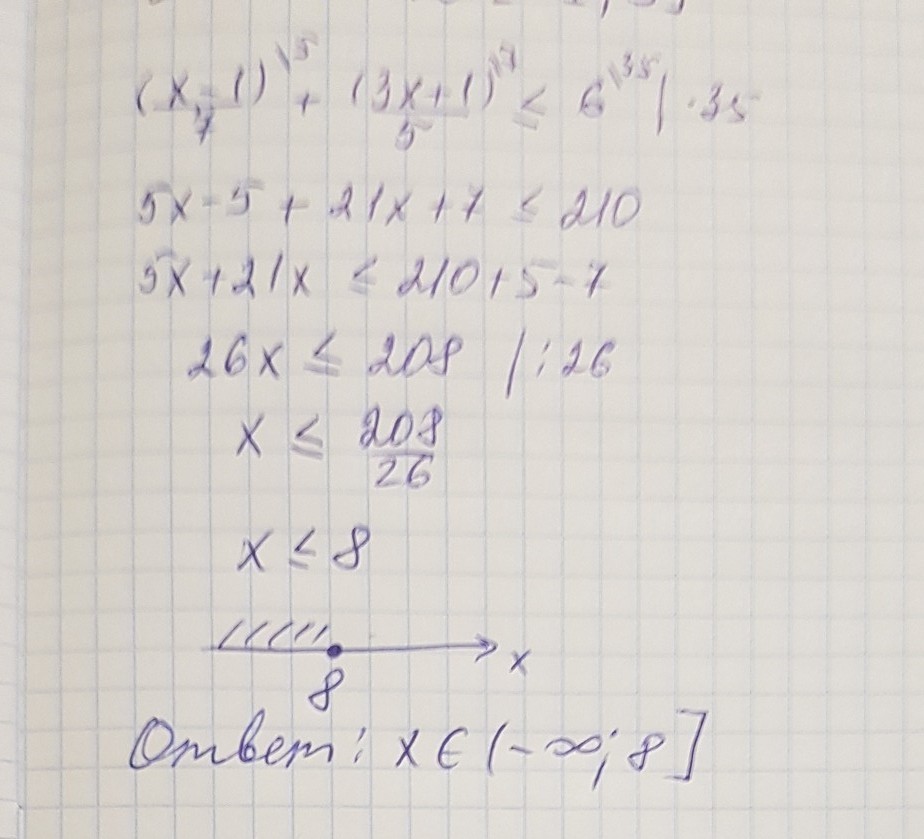 (x-1)/7 \5 + (3x+1)/5 \7 ≤ 6 \35 | ·35
5x-5 + 21x +7 ≤ 210
5x+21x ≤ 210+5-7
26x ≤ 208 | :26
x ≤ 208/26
x ≤ 8
x
8
Ответ: x ∈ (-∞; 8]